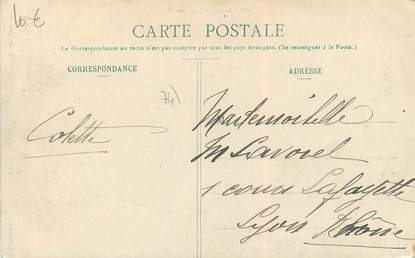 10 €
CARTE POSTALE
La Correspondance au recto n'est pas acceptée par tous les pays étrangers. (Se renseigner à la Poste.)
CORRESPONDANCE
ADRESSE
74)
Colette
Mademoiselle
M Lavorel
1 cours Lafayette
Lyon Rhône